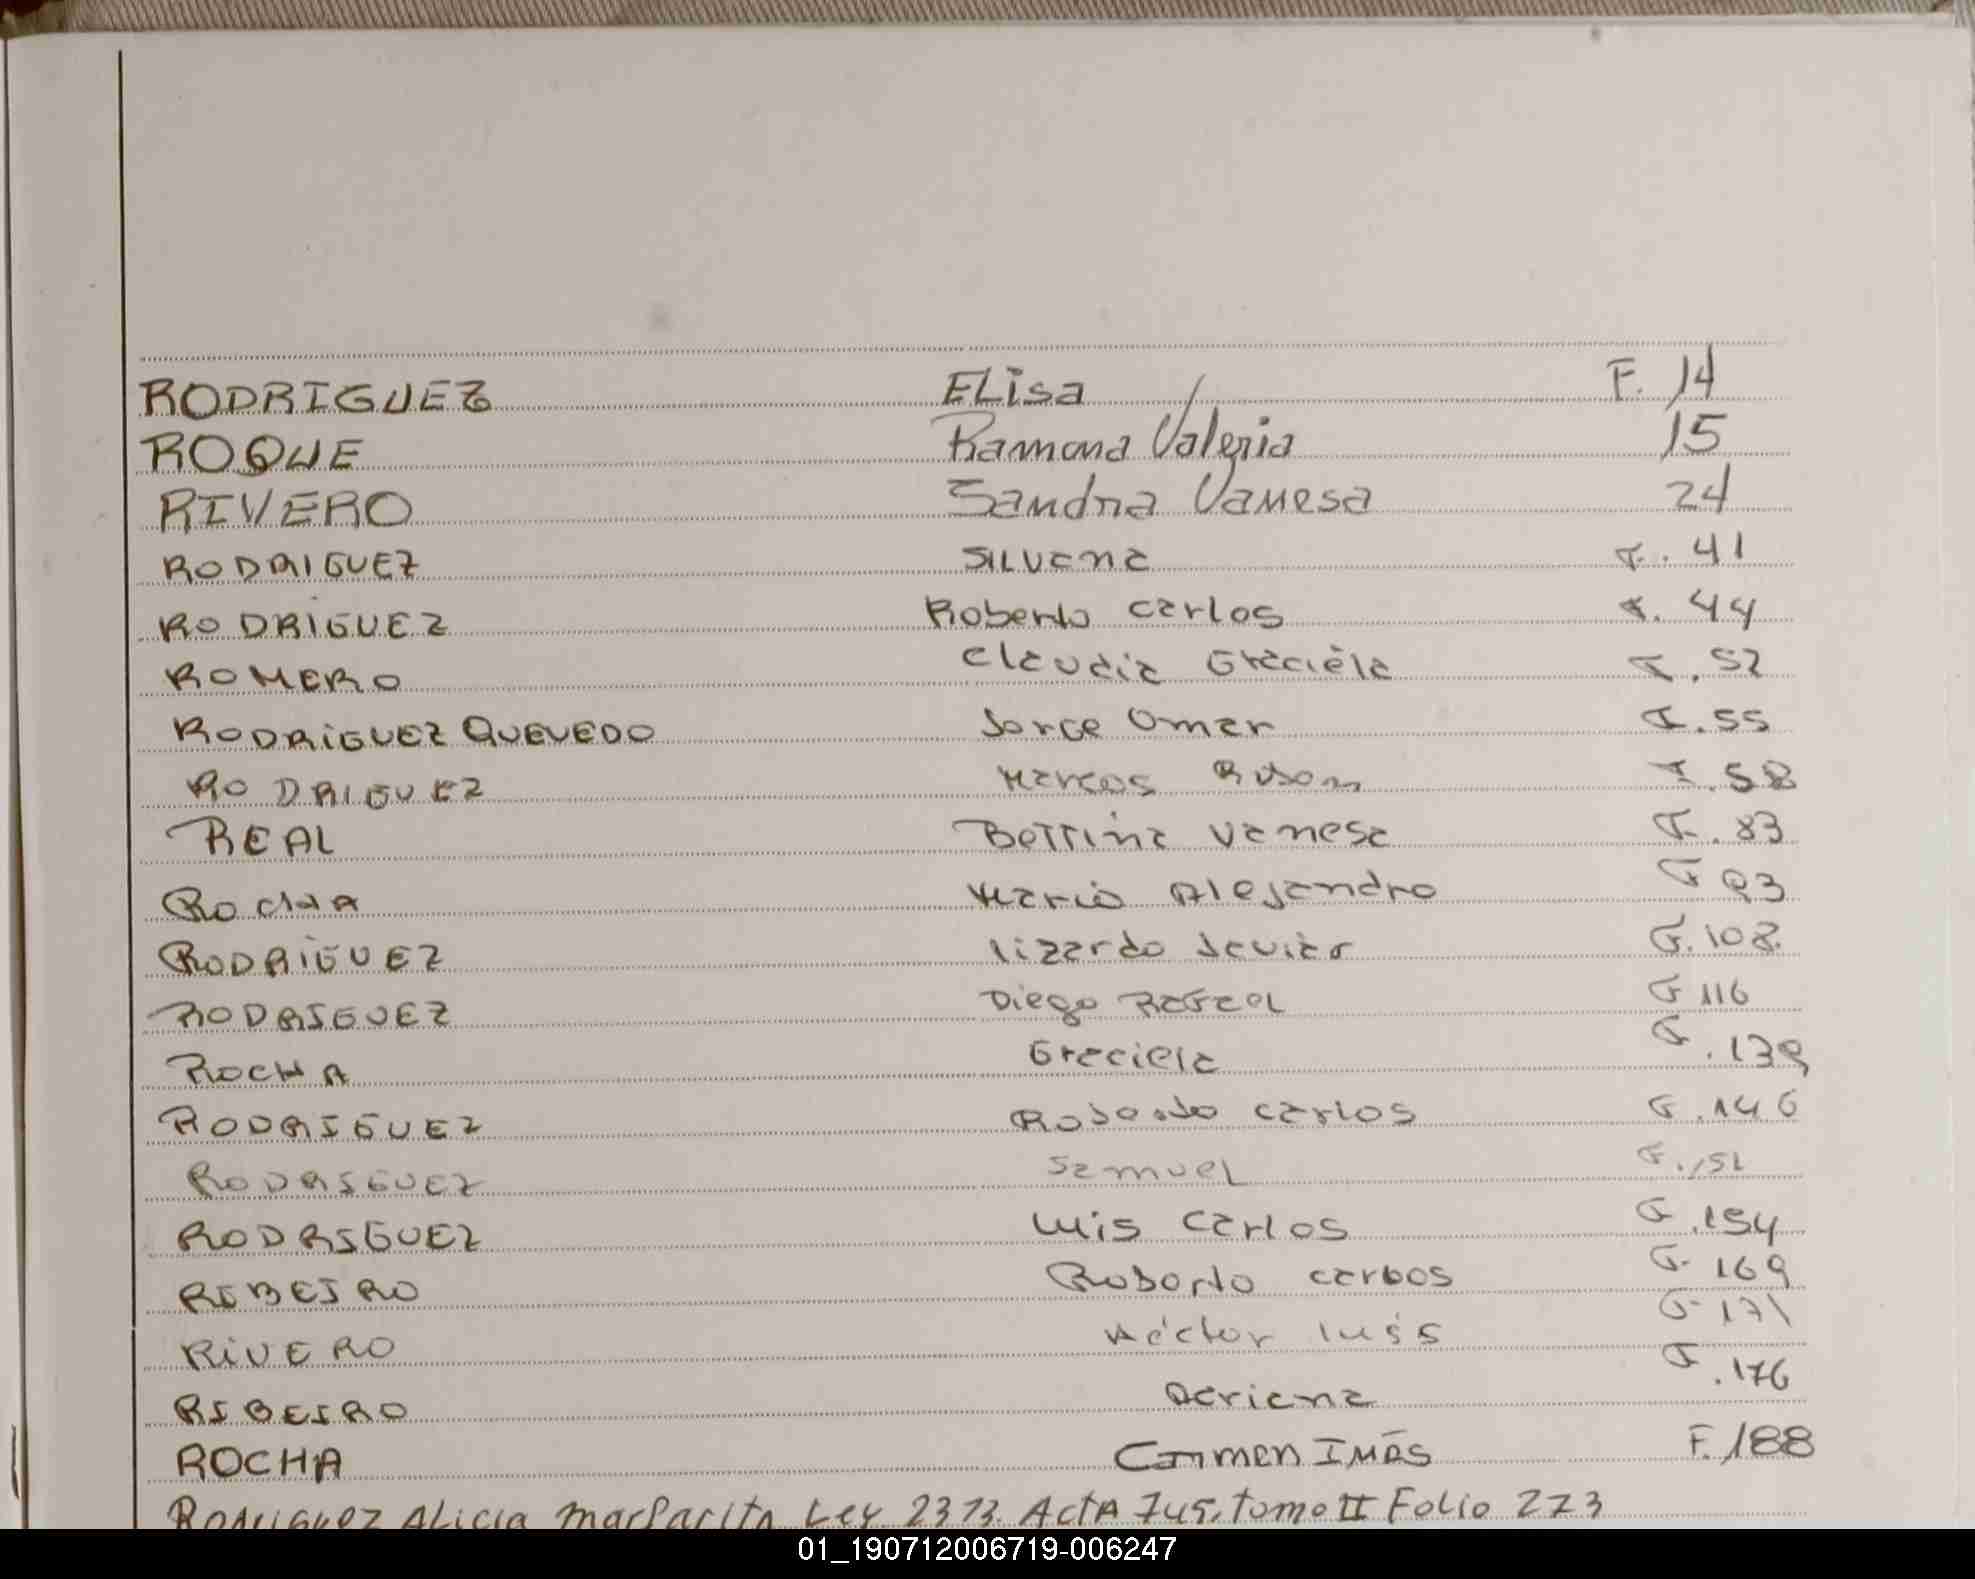 RODRIGUEZ Elisa F. 14
ROQUE Ramona Valeria 15
RIVERO Sandra Vanesa 24
RODRIGUEZ SILVANA F. 41
RODRIGUEZ Roberto Carlos F. 44
ROMERO Claudia Graciela F. 52
RODRIGUEZ QUEVEDO Jorge Omar F. 55
RODRIGUEZ Marcos Ruben F. 58
REAL Bettina Vanesa F. 83
Rocha Mario Alejandro F 93
RODRIGUEZ Lizardo Javier F. 108
RODRIGUEZ Diego Rafael F 116
ROCHA Graciela F. 139
RODRIGUEZ Roberto Carlos F. 146
RODRIGUEZ Samuel F.
RODRIGUEZ Luis Carlos F. 154
RIBEIRO Roberto Carlos F. 169
RIVERO Héctor Luis F. 171
RIBEIRO F. 176
ROCHA Carmen Inés F. 188
Rodriguez Alicia Margarita Ley 2373. Acta tomo II Folio 273
01_190712006719-006247